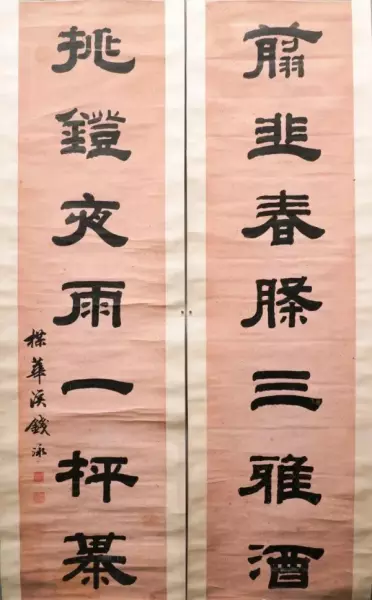 翦韭春塍三雅酒
挑鐙夜雨一枰棊
楳華溪錢泳